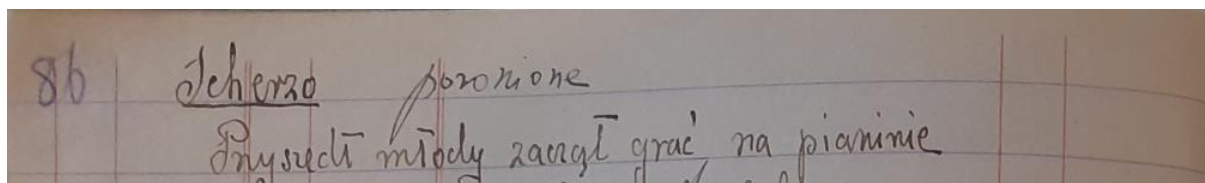 86 Scherzo poronione
Przyszedł młody zaczął grać na pianinie